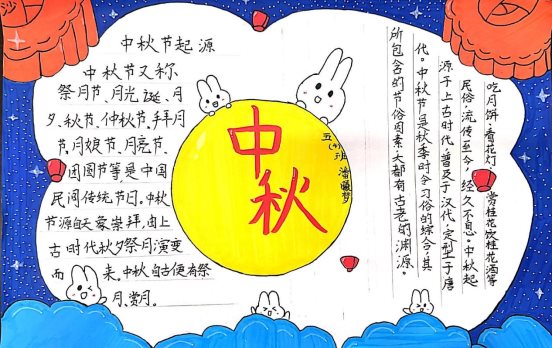 中秋节起源
中秋节又称
祭月节、月光诞、月
夕、秋节、仲秋节、拜月
节、月娘节、月亮节、
团圆节等是中国
民间传统节日。中秋
节源自天象崇拜，由上
古时代秋夕祭月演变
而来。中秋自古便有祭
月、赏月、
中秋
班
吃月饼、看花灯、赏桂花、饮桂花酒等
民俗，流传至今，经久不息。中秋起
源于上古时代，普及于汉代，定型于唐
代。中秋节是秋季时令习俗的综合，其
所包含的节俗因素，大都有古老的渊源。